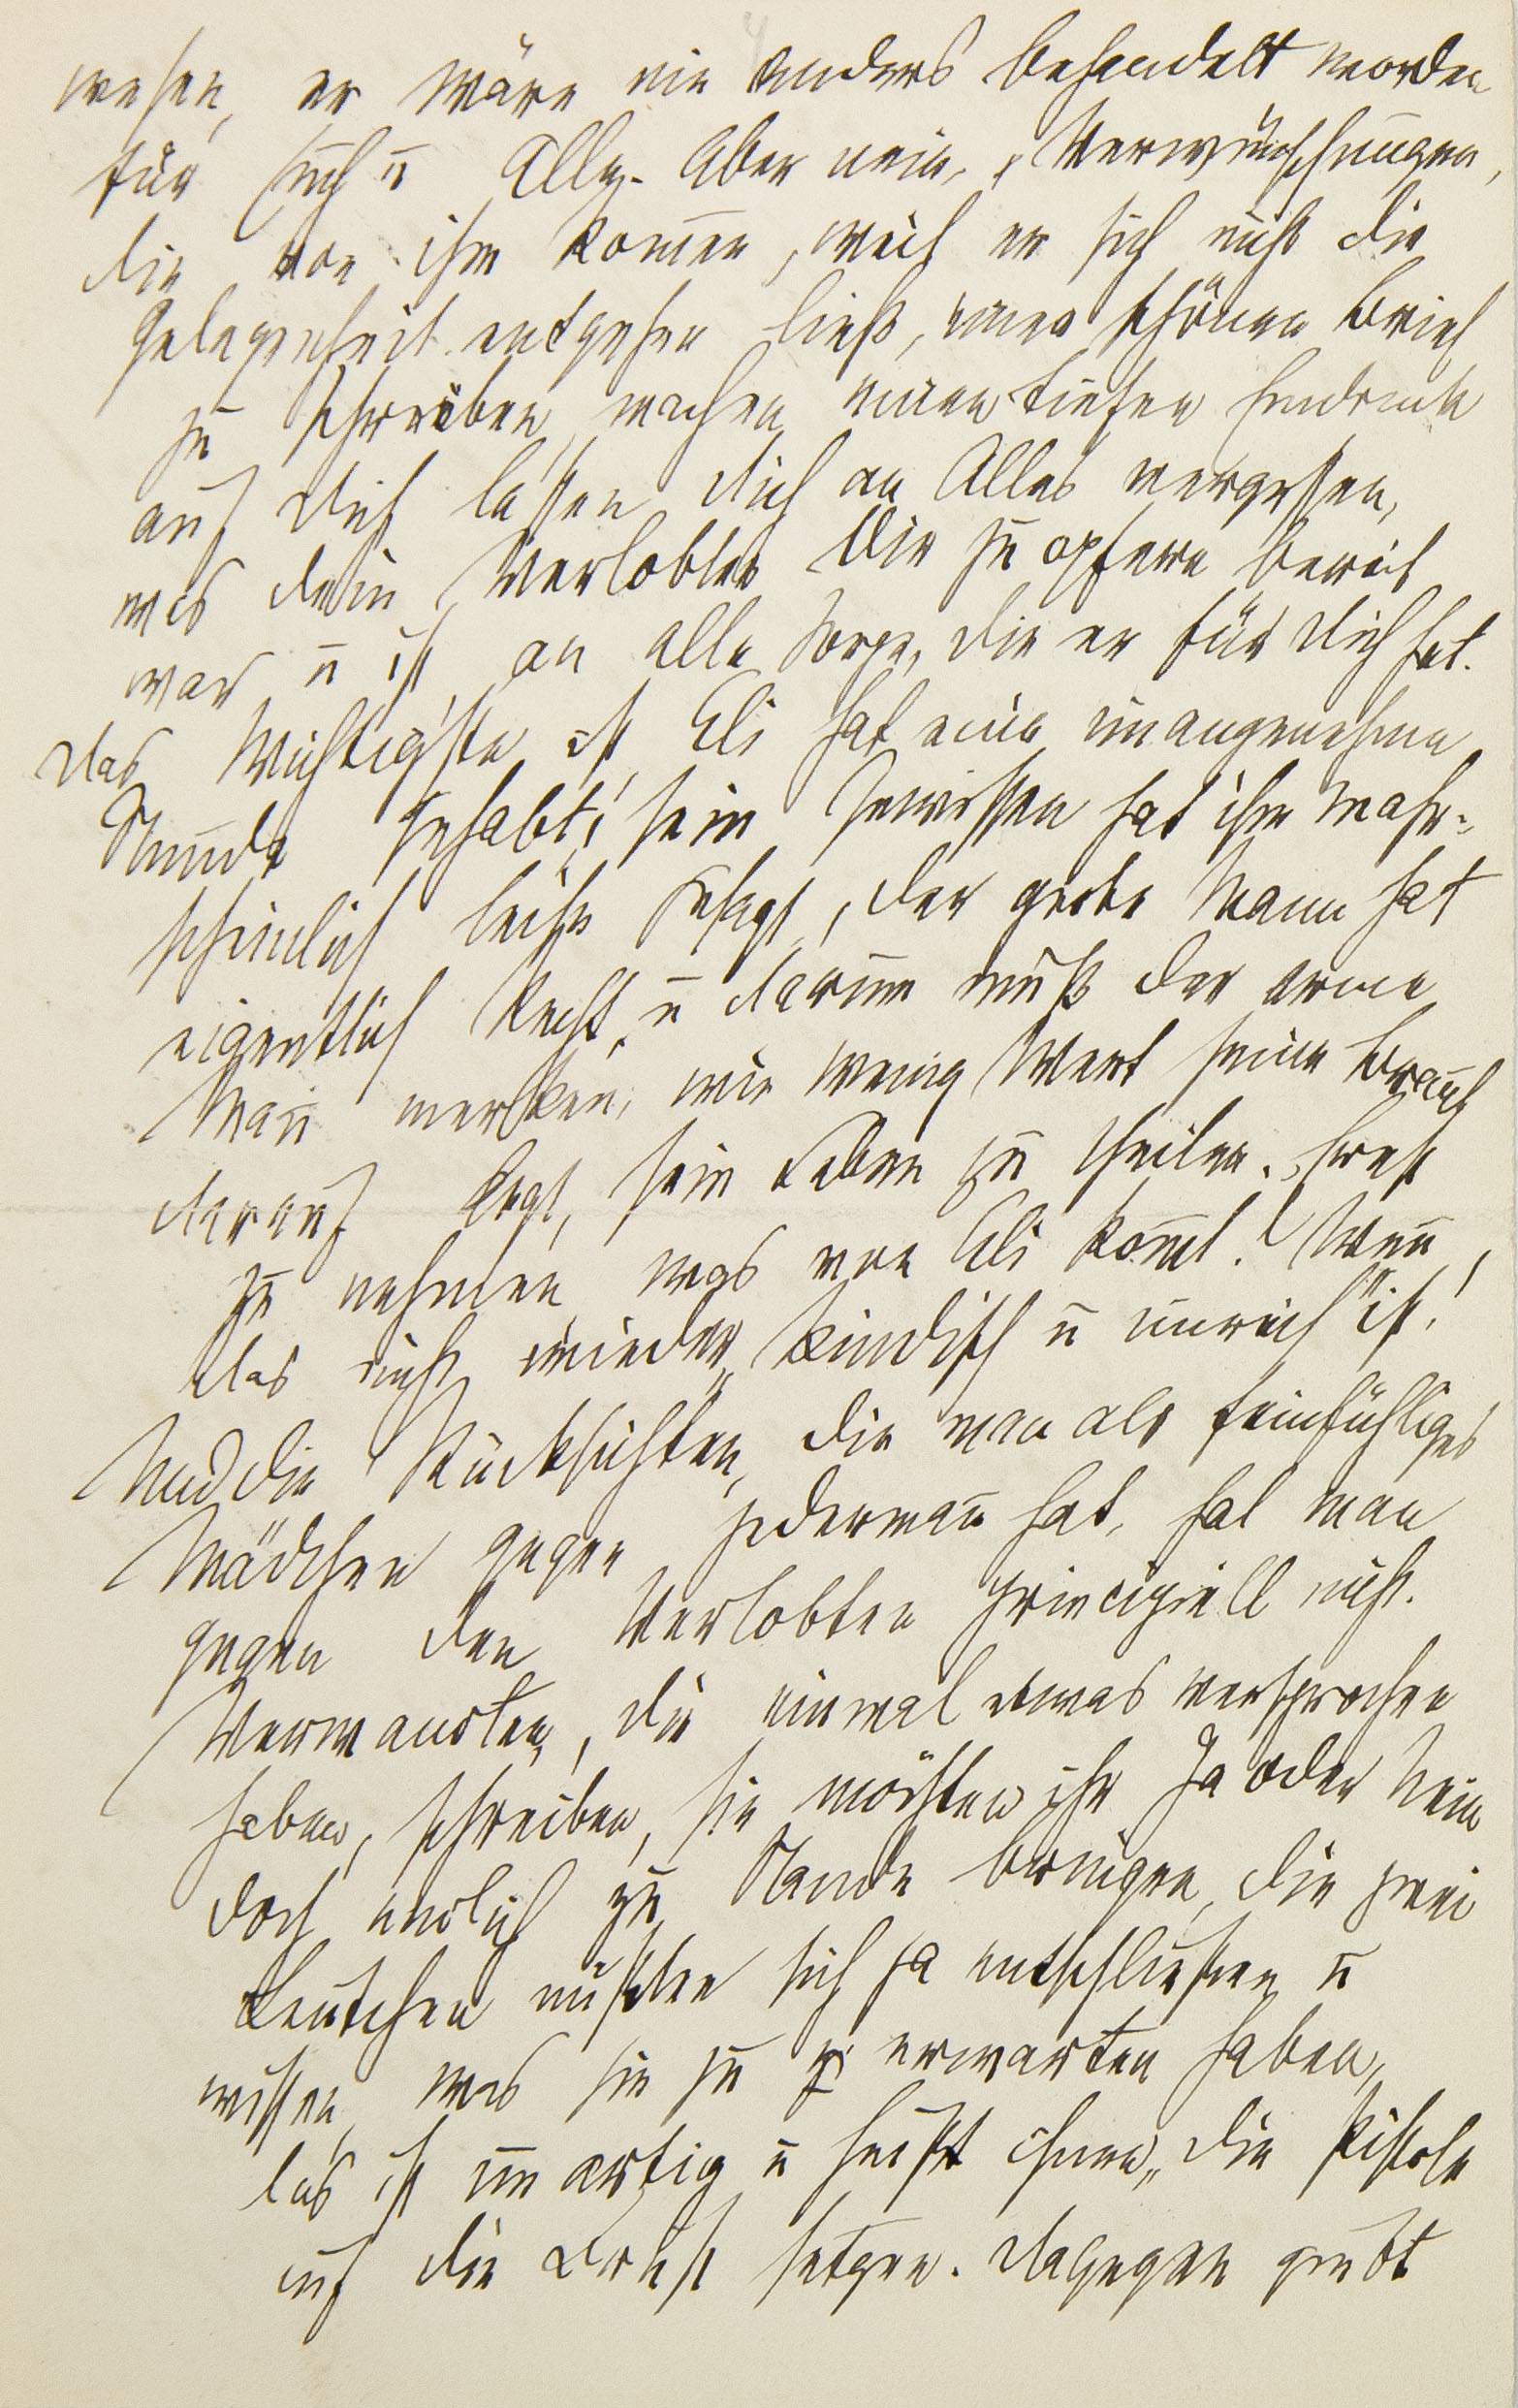 wesen, er wäre nie anders behandelt worden
für mich u Alle. Aber nein, Verwünschungen,
die von ihm kommen, weil er sich nicht die
Gelegenheit entgehen ließ, einen schönen Brief
zu schreiben, machen einen tiefen Eindruck
auf Dich lassen Dich an Alles vergessen,
was dein Verlobter Dir zu opfern bereit
war u ist, an alle Sorge, die er für Dich hat.
Das Wichtigste ist, Eli hat eine unangenehme
Stunde gehabt, sein Gewissen hat ihm wahr-
scheinlich leise gesagt, der grobe Mann hat
eigentlich Recht, u darum muß der arme
Mann merken, wie wenig Wert seine Braut
darauf legt, sein Leben zu theilen. Ernst
zu nehmen, was von Eli kommt! Wenn
das nicht wieder „kindisch u unreif" ist!
Und die Rücksichten, die man als feinfühliges
Mädchen gegen jedermann hat, hat man
gegen den Verlobten principiell nicht.
Verwandten, die einmal etwas versprochen
haben, schreiben, sie möchten ihr Ja oder Nein
doch endlich zu Stande bringen, die zwei
Leutchen müßten sich ja entschließen u
wissen, was sie zu erwarten haben,
das ist unartig u heißt ihnen „die Pistole
auf die Brust setzen. Dagegen giebt